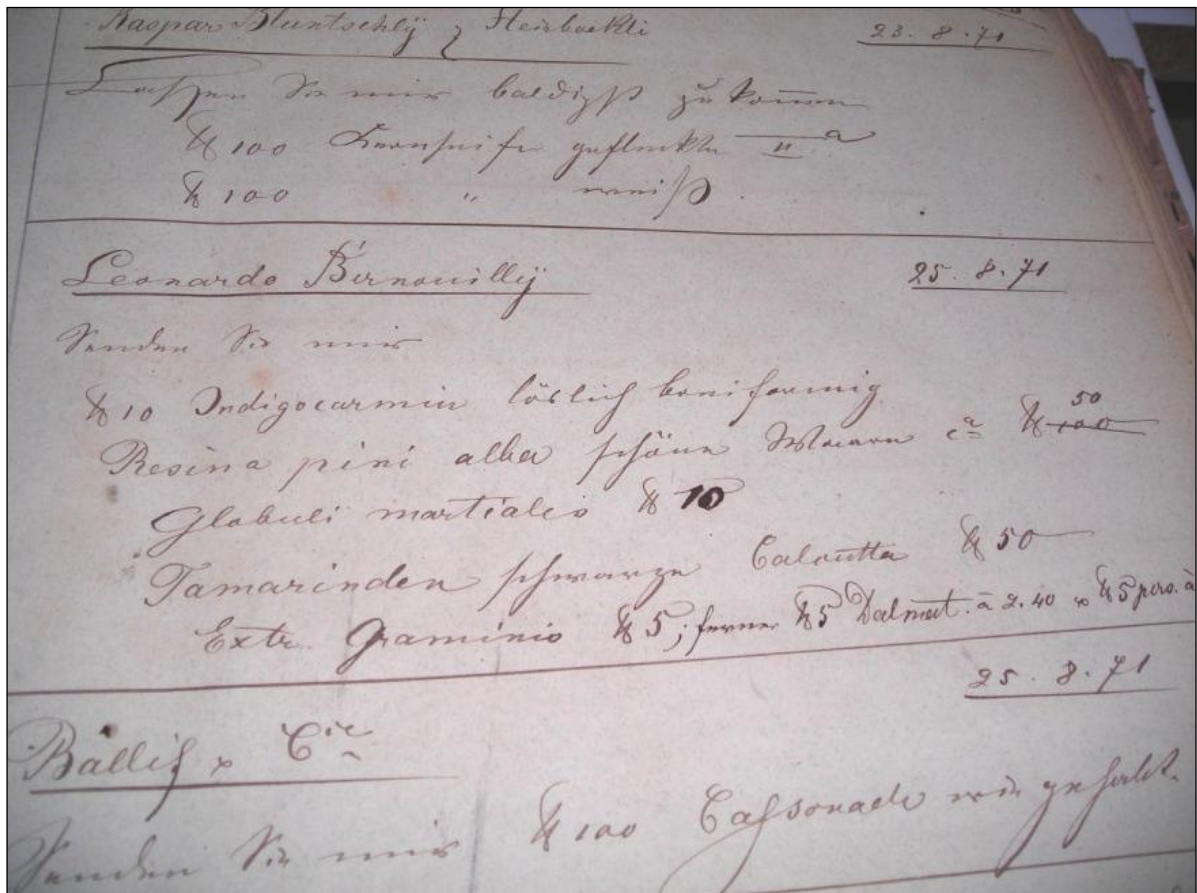 Kaspar Bluntschlÿ z Steinböckli 23. 8. 71
Lassen Sie mir baldigst zu kom̅en
℔ 100 Kernseife gefleckte IIa
℔ 100 " weiß
Leonardo Bernouillÿ 25. 8. 71
Senden Sie mir
℔ 10 Indigocarmin löslich
Resina pini alba schöne Waare ca ℔ 100 50
Globuli martialis ℔ 10
Tamarinden schwarze Calcutta ℔ 50
Extr. Graminis ℔ 5; ferner ℔ 5 Dalmat. à 2.40 ℔ 5 pers. à
25. 8. 71
Ballif & Cie
Senden Sie mir ℔ 100 Cassonade wie gehabt.